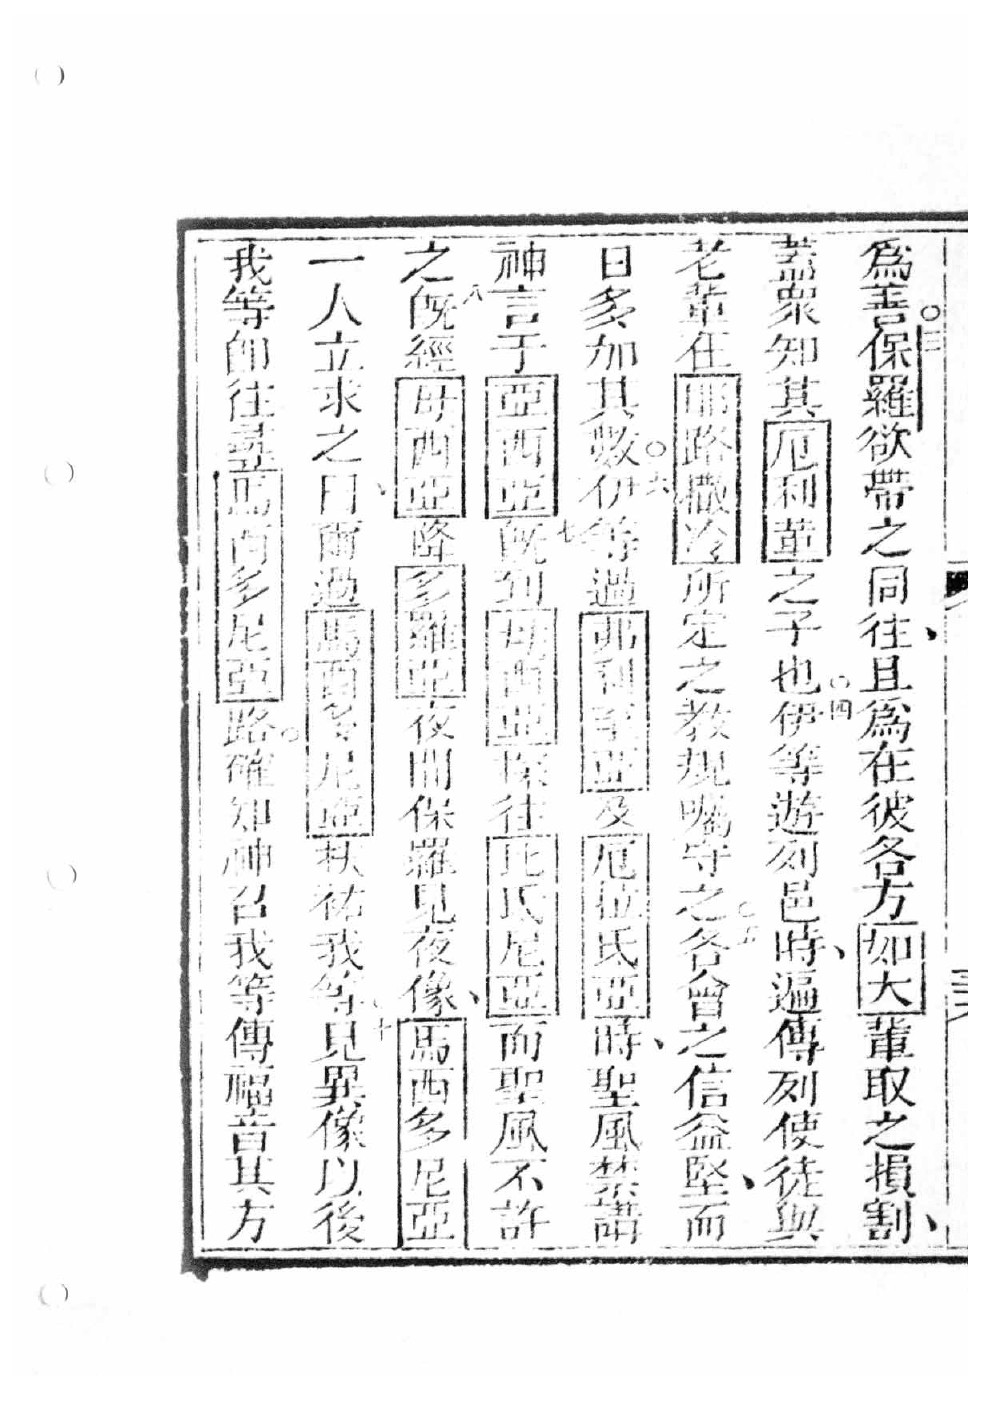 為善○三保羅欲帶之同往、且為在彼各方如大輩取之損割、
蓋衆知其厄利輩之子也○四伊等遊列邑時、遍傳列使徒與
老輩在耶路撒冷所定之教規囑守之○五各會之信益堅、而
日多加其數○六伊等過弗利至亞及厄拉氏亞時、聖風禁講
神言于亞西亞七既到母西亞探往比氏尼亞而聖風不許
之八既經母西亞降多羅亞夜間保羅見夜像、馬西多尼亞
一人立求之曰、爾過馬西多尼亞扶祐我等、十見異像以後
我等卽往尋馬西多尼亞路○確知神召我等傳福音其方